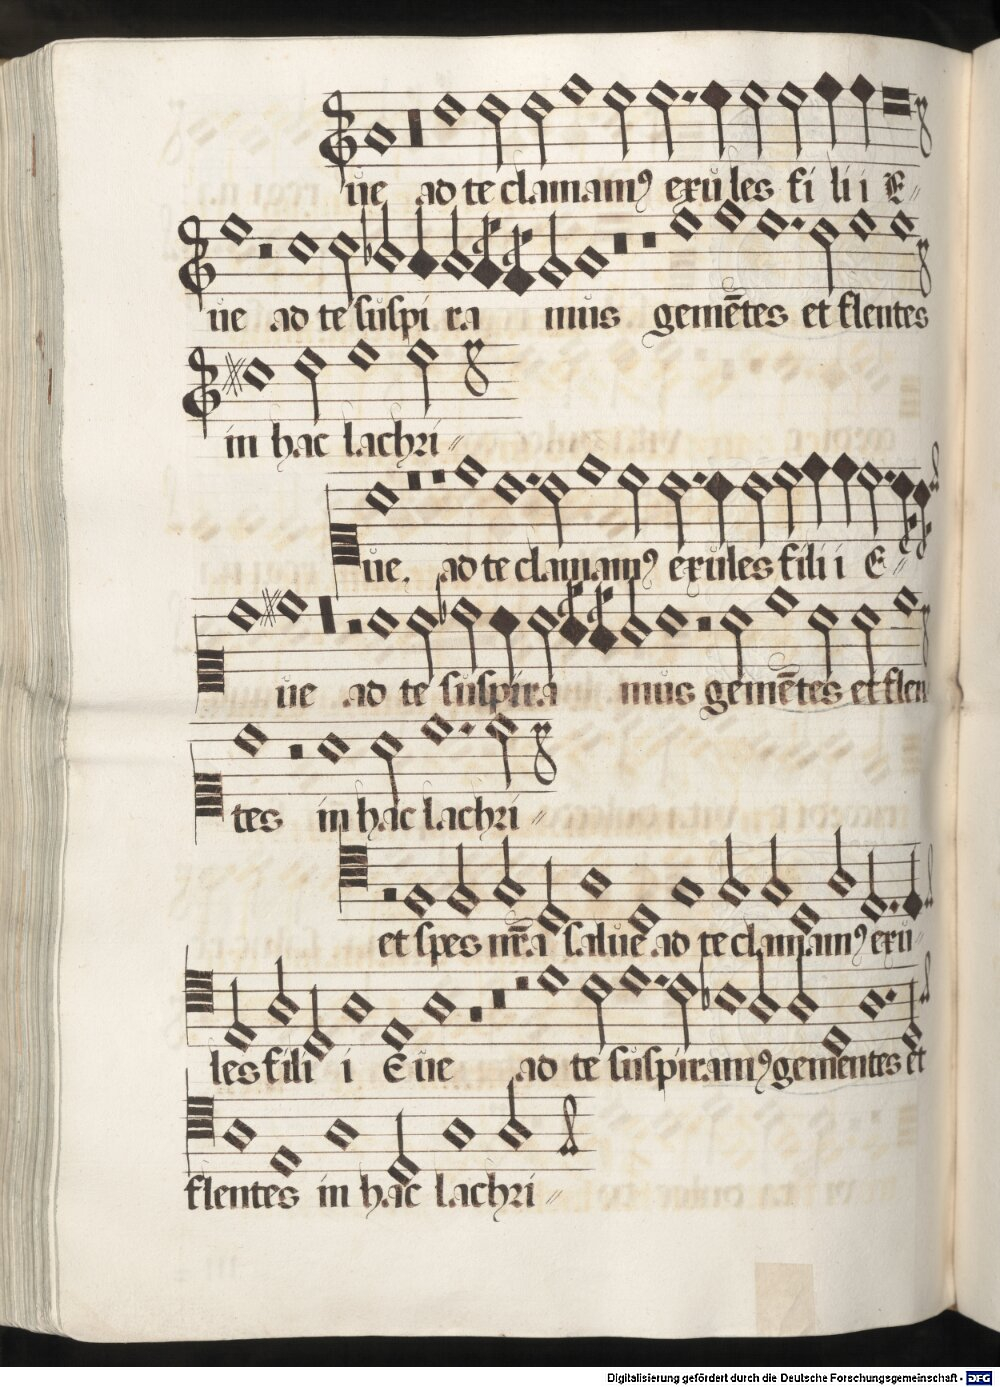 ue ad te clamamꝰ exules fi li i E〃
ue ad te suspi ra mus gemētes et flentes
in hac lachri〃
ue. ad te clamamꝰ exules fili i E〃
ue ad te suspira mus gemētes et flen
tes in hac lachri〃
et spes nr̄a salue ad te clamamꝰ exu〃
les fili i E ue ad te suspiramꝰ gementes et
flentes in hac lachri〃
Digitalisierung gefördert durch die Deutsche Forschungsgemeinschaft - DFG